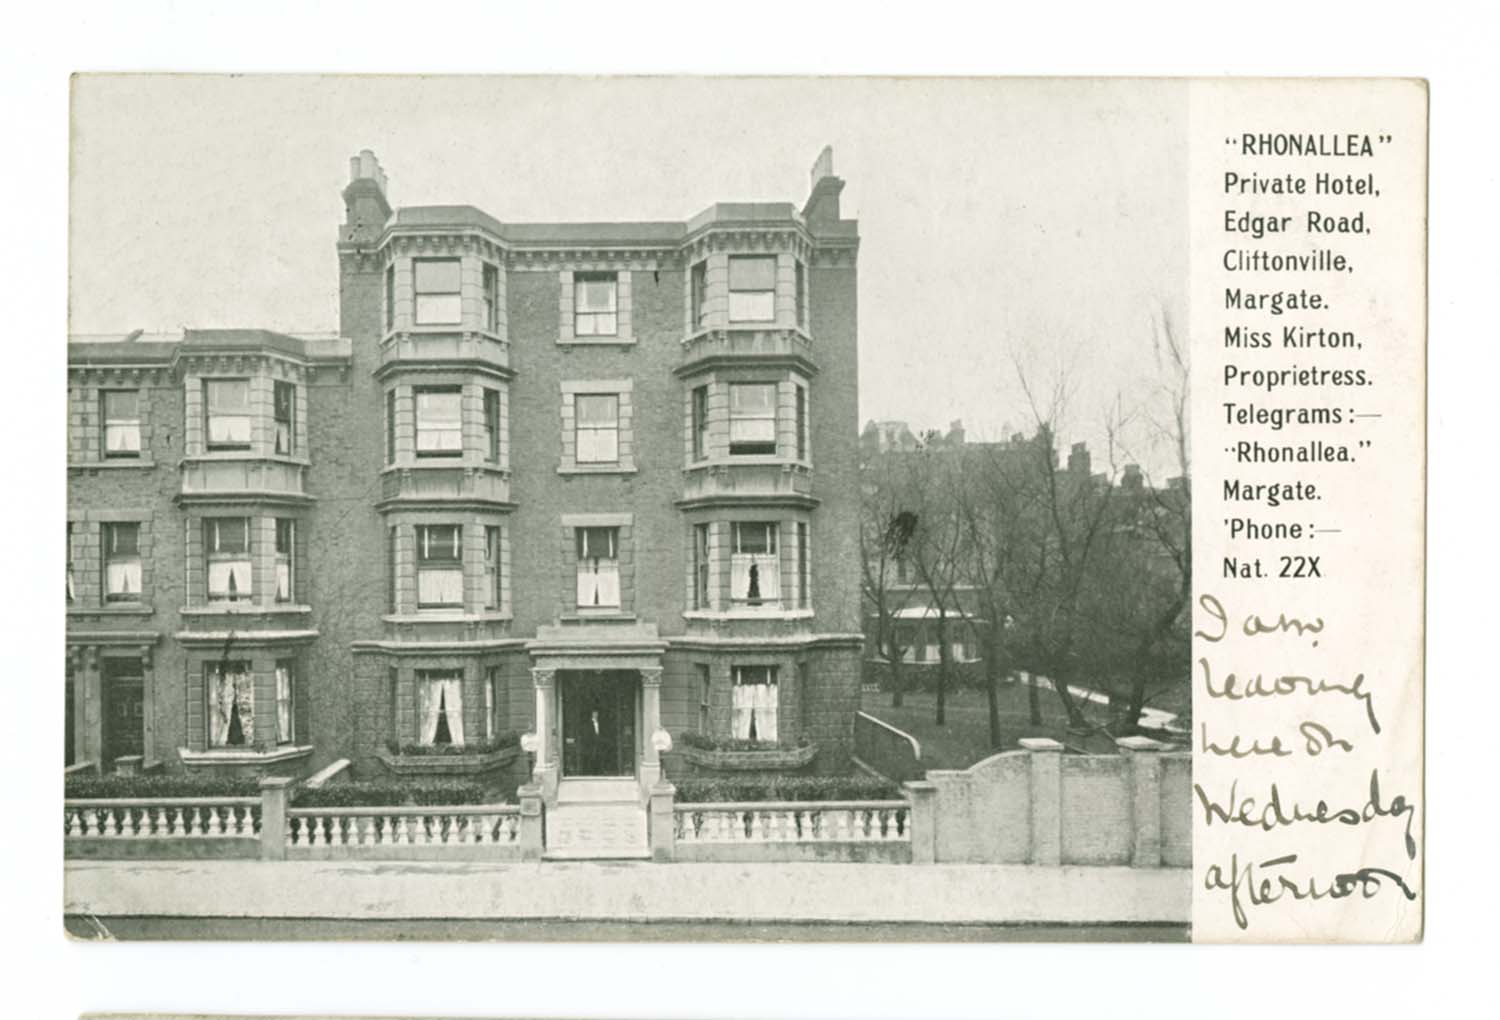 "RHONALLEA"
Private Hotel,
Edgar Road,
Cliftonville,
Margate.
Miss Kirton,
Proprietress.
Telegrams:—
"Rhonallea."
Margate.
'Phone:—
Nat. 22X
I am
leaving
here on
Wednesday
afternoon